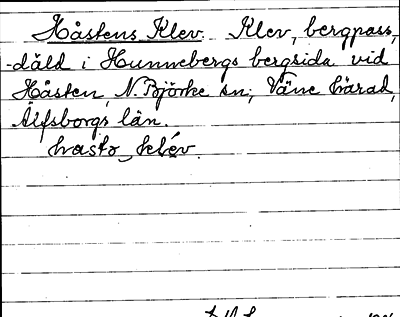 Håstens Klev. Klev, bergpass,
-däld i Hunnebergs bergsida vid
Håsten, N. Björke sn, Väne härad,
Älfsborgs län.
hasto klév.